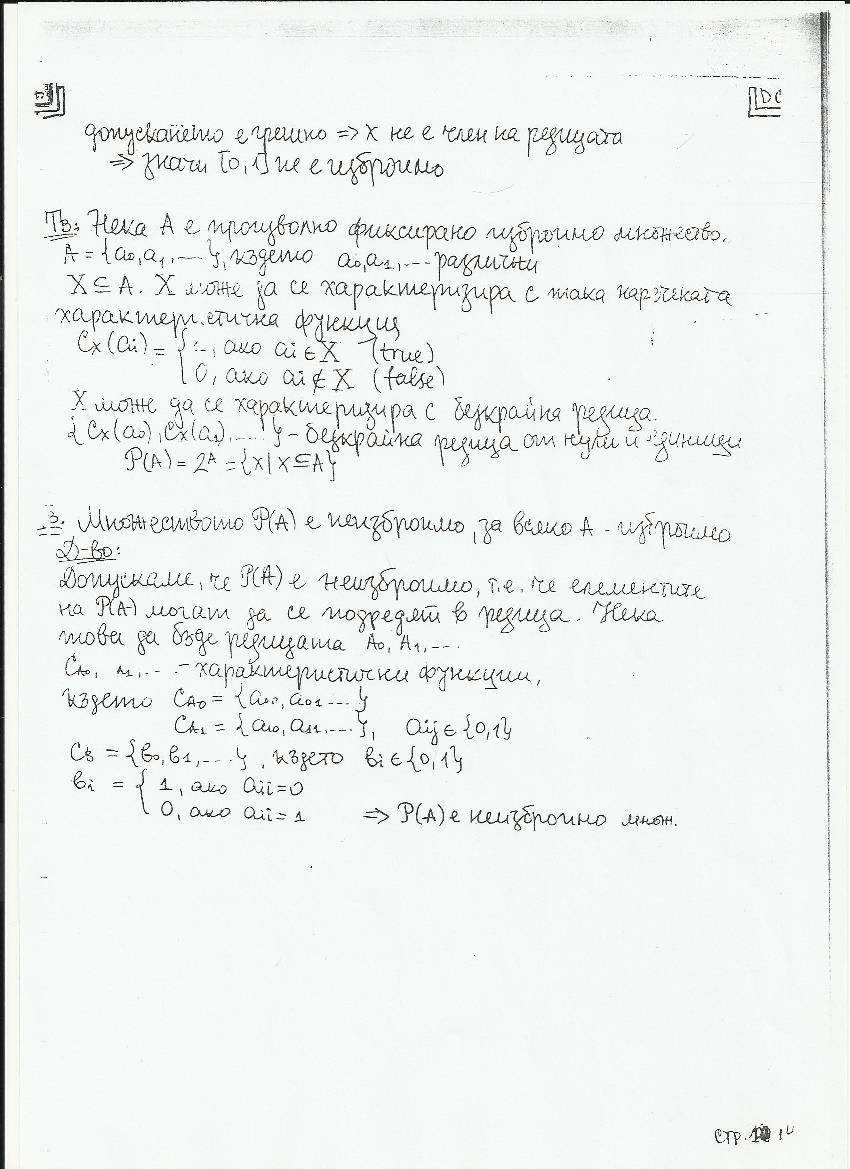 DC
допускането е грешно => x не е член на редицата
=> значи [0,1] не е изброимо
Тв: Нека A е произволно фиксирано изброимо множество.
A = {a₀, a₁, ...}, където a₀, a₁, ... различни
X ⊆ A. X може да се характеризира с така наречената
характеристична функция
Cx(ai) = { , ако ai ∈ X (true)
0, ако ai ∉ X (false)
X може да се характеризира с безкрайна редица.
{Cx(a₀), Cx(a₁), ...} - безкрайна редица от нули и единици
P(A) = 2ᴬ = {X | X ⊆ A}
в. Множеството P(A) е неизброимо, за всяко A - изброимо
Д-во:
Допускаме, че P(A) е неизброимо, т.е. че елементите
на P(A) могат да се подредят в редица. Нека
това да бъде редицата A₀, A₁, ...
C_A₀, A₁, ... - характеристични функции,
където C_A₀ = {a₀₀, a₀₁ ...}
C_A₁ = {a₁₀, a₁₁, ...}, aij ∈ {0,1}
C_B = {b₀, b₁, ...}, където bi ∈ {0,1}
bi = { 1, ако aii = 0
0, ако aii = 1 => P(A) е неизброимо множ.
стр.